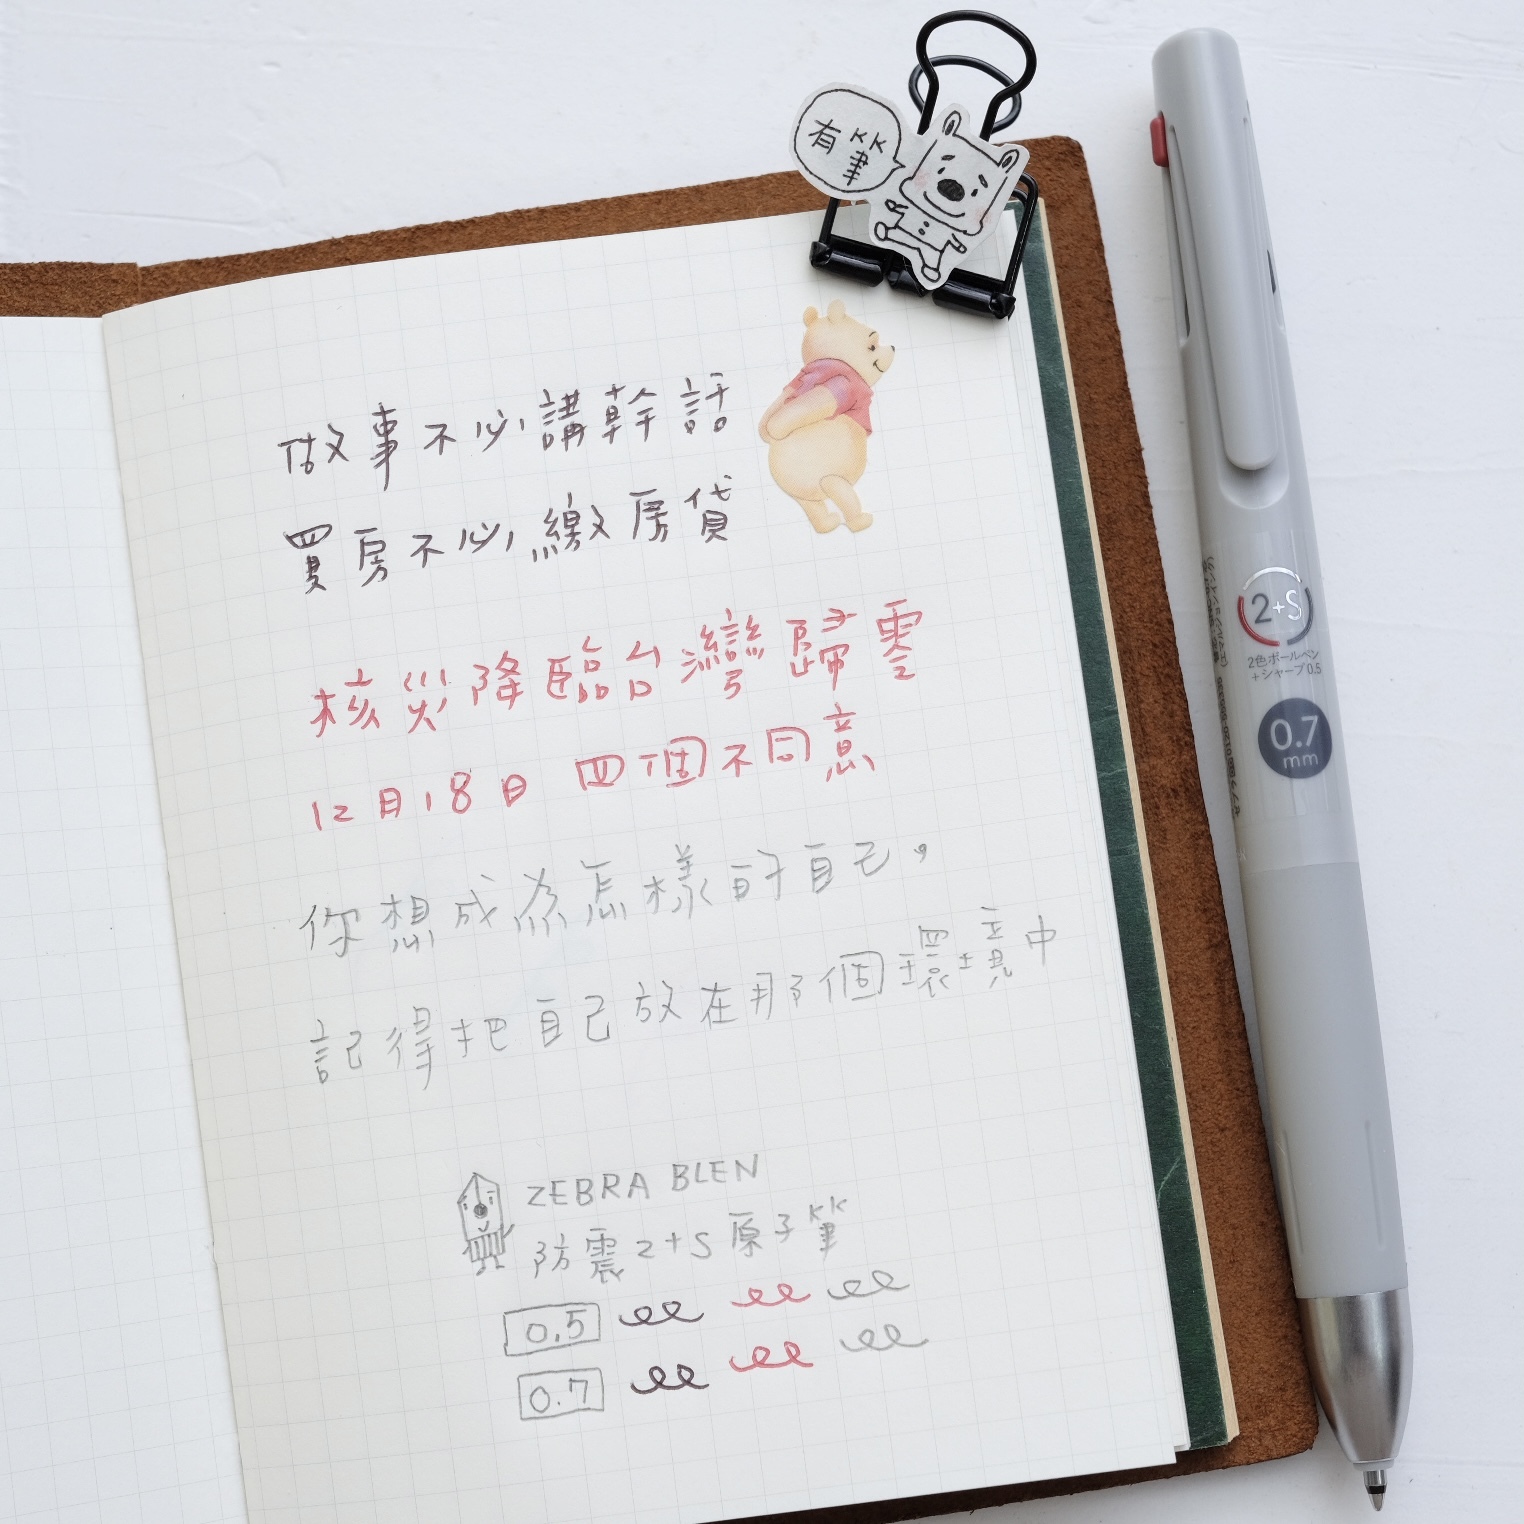 有筆
做事不必講幹話
買房不必繳房貸
核災降臨台灣歸零
12月18日 四個不同意
你想成為怎樣的自己,
記得把自己放在那個環境中
ZEBRA BLEN
防震2+S原子筆
0.5
0.7
2+S
2色ボールペン
+シャープ0.5
0.7
mm